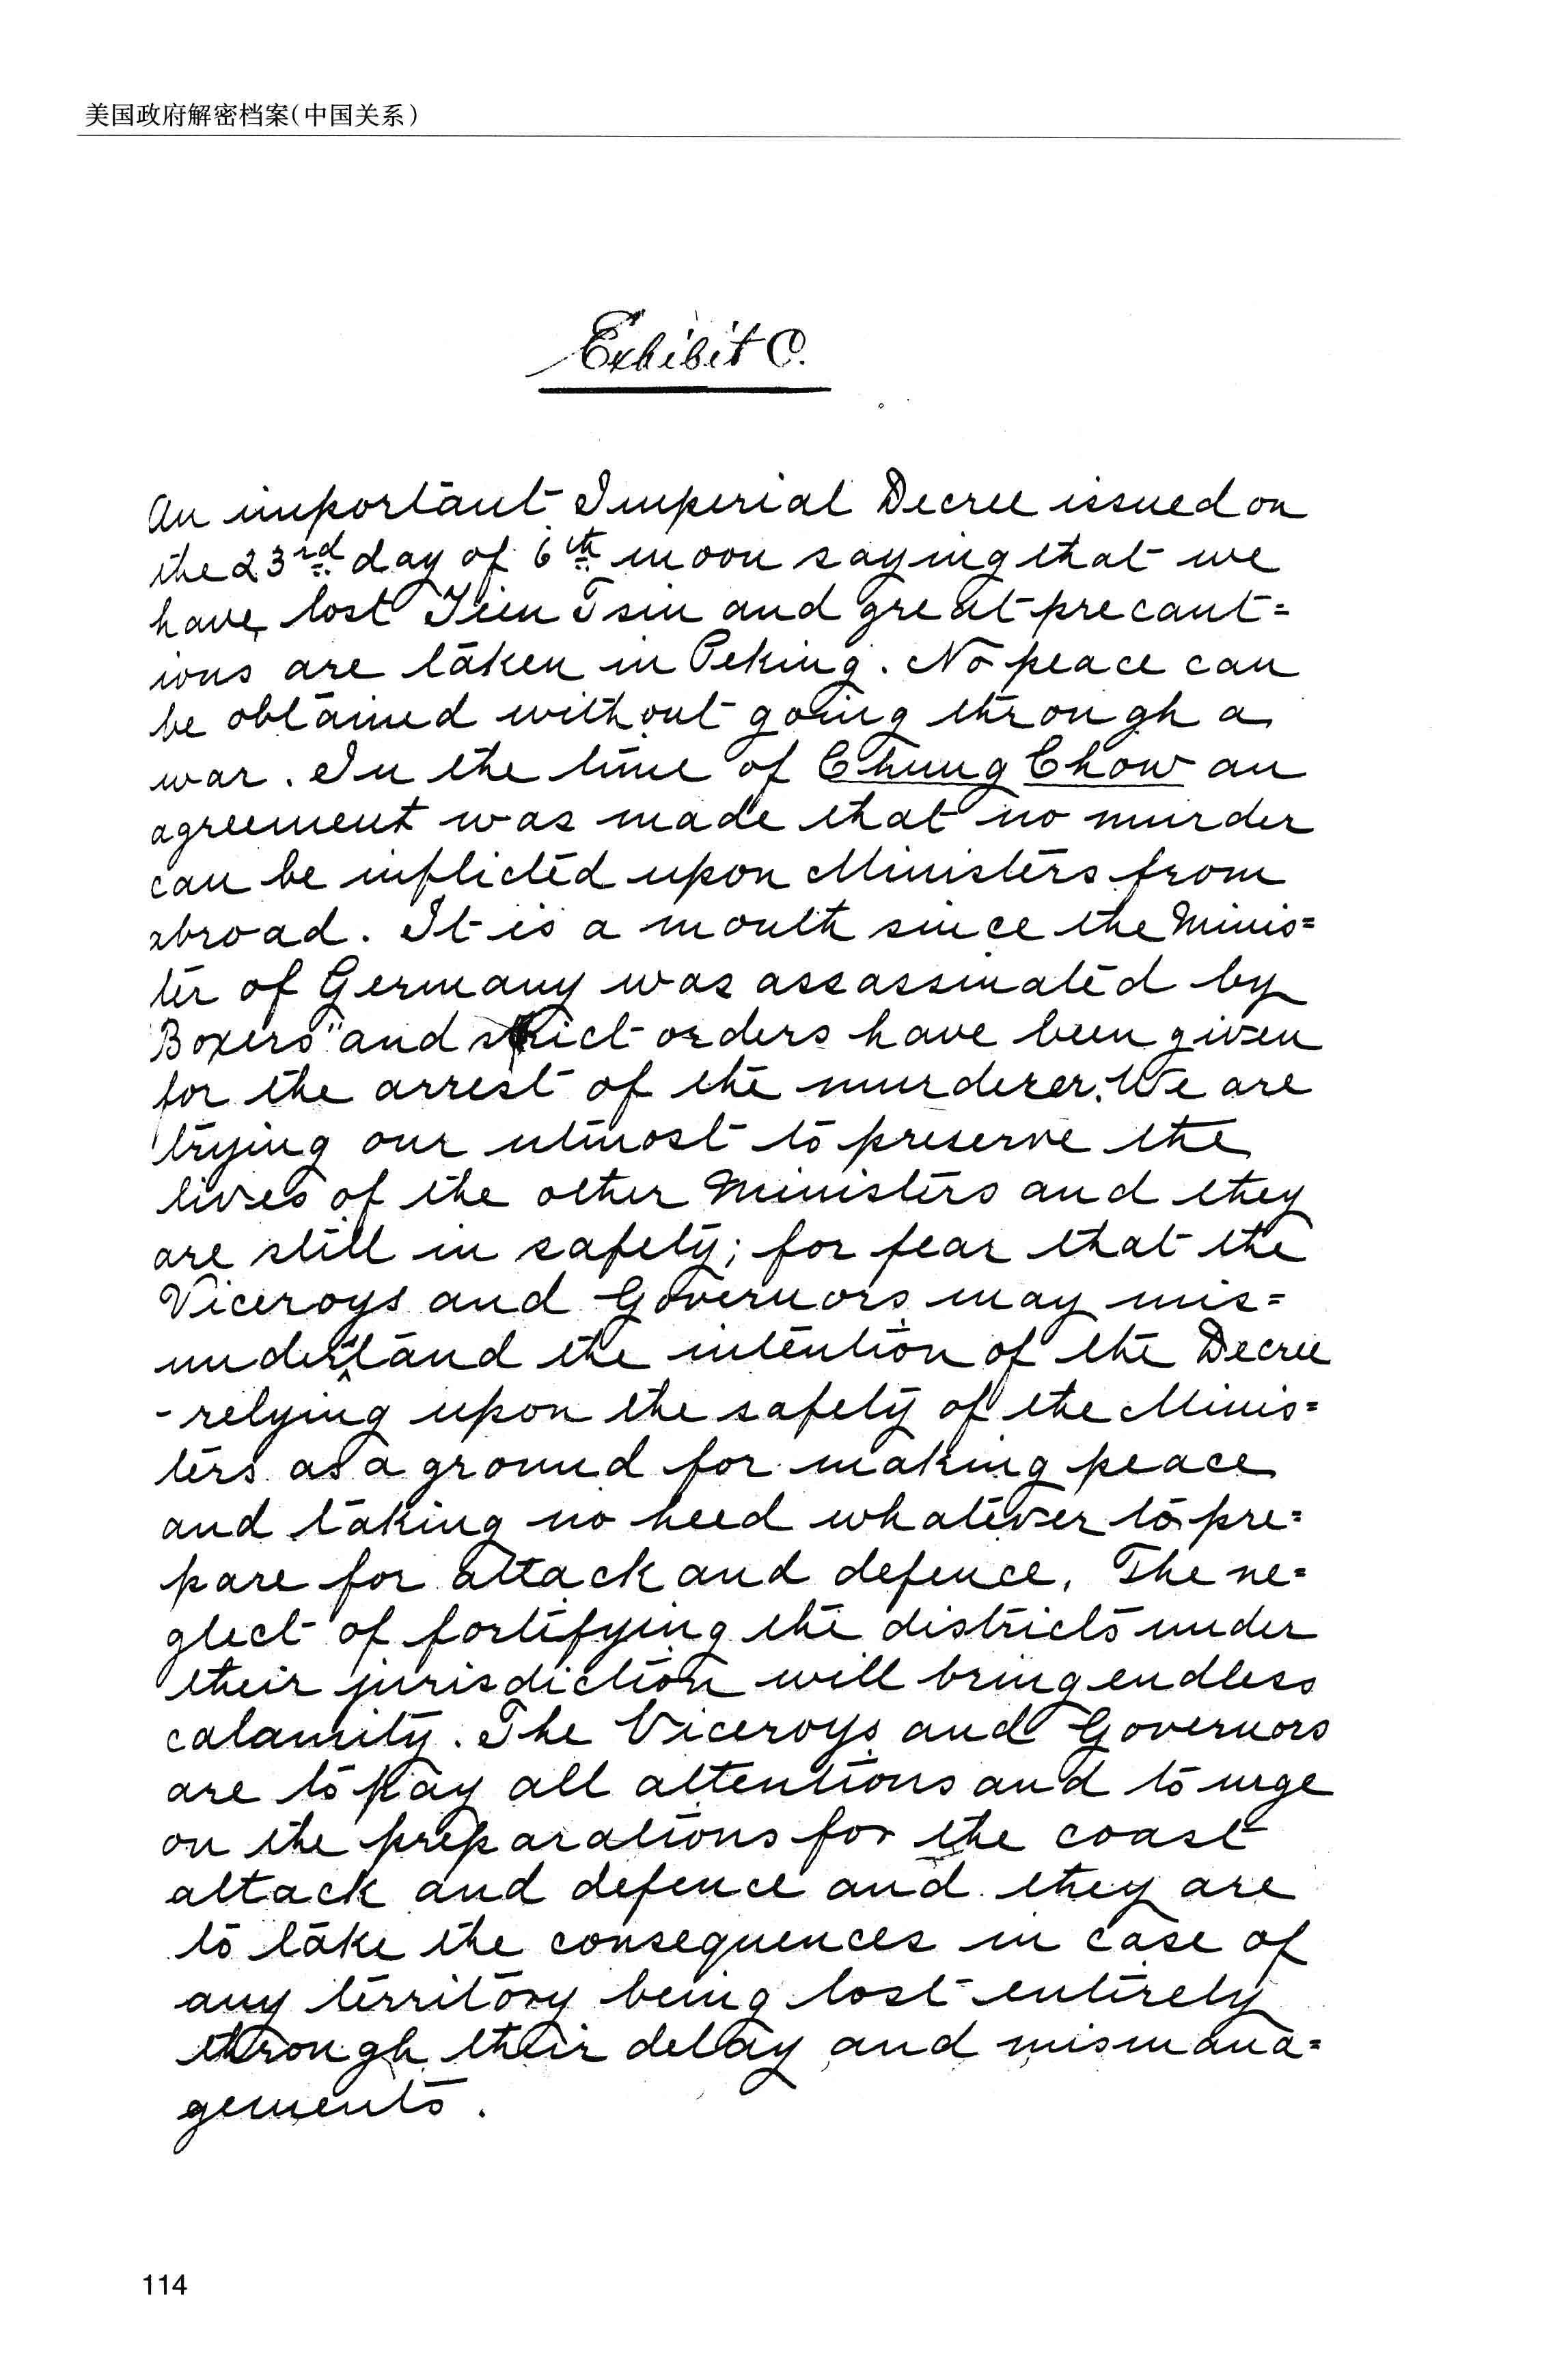 美国政府解密档案(中国关系)
Exhibit C.
An important Imperial Decree issued on
the 23rd day of 6th moon saying that we
have lost Tien Tsin and great precaut=
ions are taken in Peking. No peace can
be obtained without going through a
war. In the time of Chung Chow an
agreement was made that no murder
can be inflicted upon Ministers from
abroad. It is a month since the Minis=
ter of Germany was assassinated by
Boxers" and strict orders have been given
for the arrest of the murderer. We are
trying our utmost to preserve the
lives of the other Ministers and they
are still in safety; for fear that the
Viceroys and Governors may mis=
understand the intention of the Decree
-relying upon the safety of the Minis=
ters as a ground for making peace
and taking no heed whatever to pre=
pare for attack and defence. The ne=
glect of fortifying the districts under
their jurisdiction will bring endless
calamity. The Viceroys and Governors
are to pay all attentions and to urge
on the preparations for the coast
attack and defence and they are
to take the consequences in case of
any territory being lost entirely
through their delay and mismana=
gements.
114